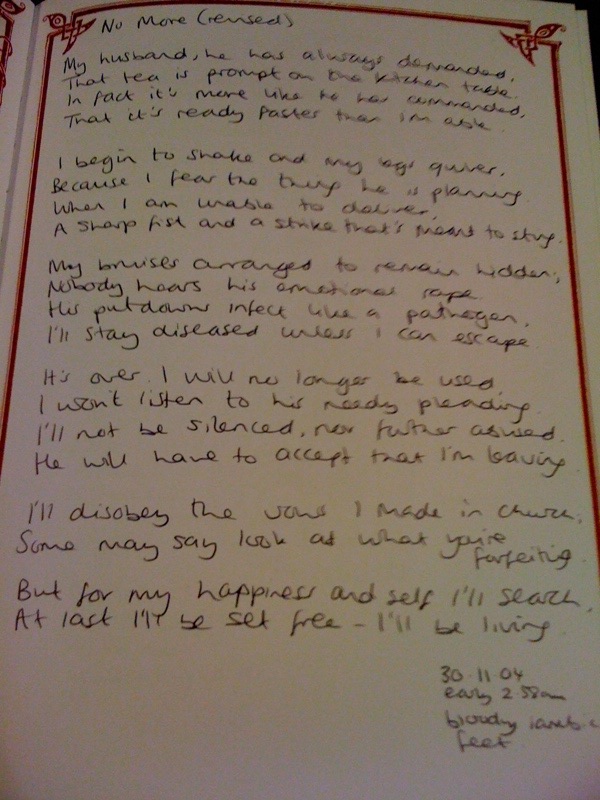 No More (revised)
My husband, he has always demanded,
That tea is prompt on the kitchen table.
In fact it's more like he has commanded,
That it's ready faster than I'm able.
I begin to shake and my legs quiver,
Because I fear the thing he is planning
When I am unable to deliver,
A sharp fist and a strike that's meant to sting.
My bruises arranged to remain hidden,
Nobody hears his emotional rape.
His putdowns infect like a pathogen,
I'll stay diseased unless I can escape
It's over. I will no longer be used
I won't listen to his needy pleading.
I'll not be silenced, nor further abused.
He will have to accept that I'm leaving
I'll disobey the vows I made in church,
Some may say look at what you're
forfeiting.
But for my happiness and self I'll search,
At last I'll be set free - I'll be living
30.11.04
early 2.58am
bloody iambic
feet